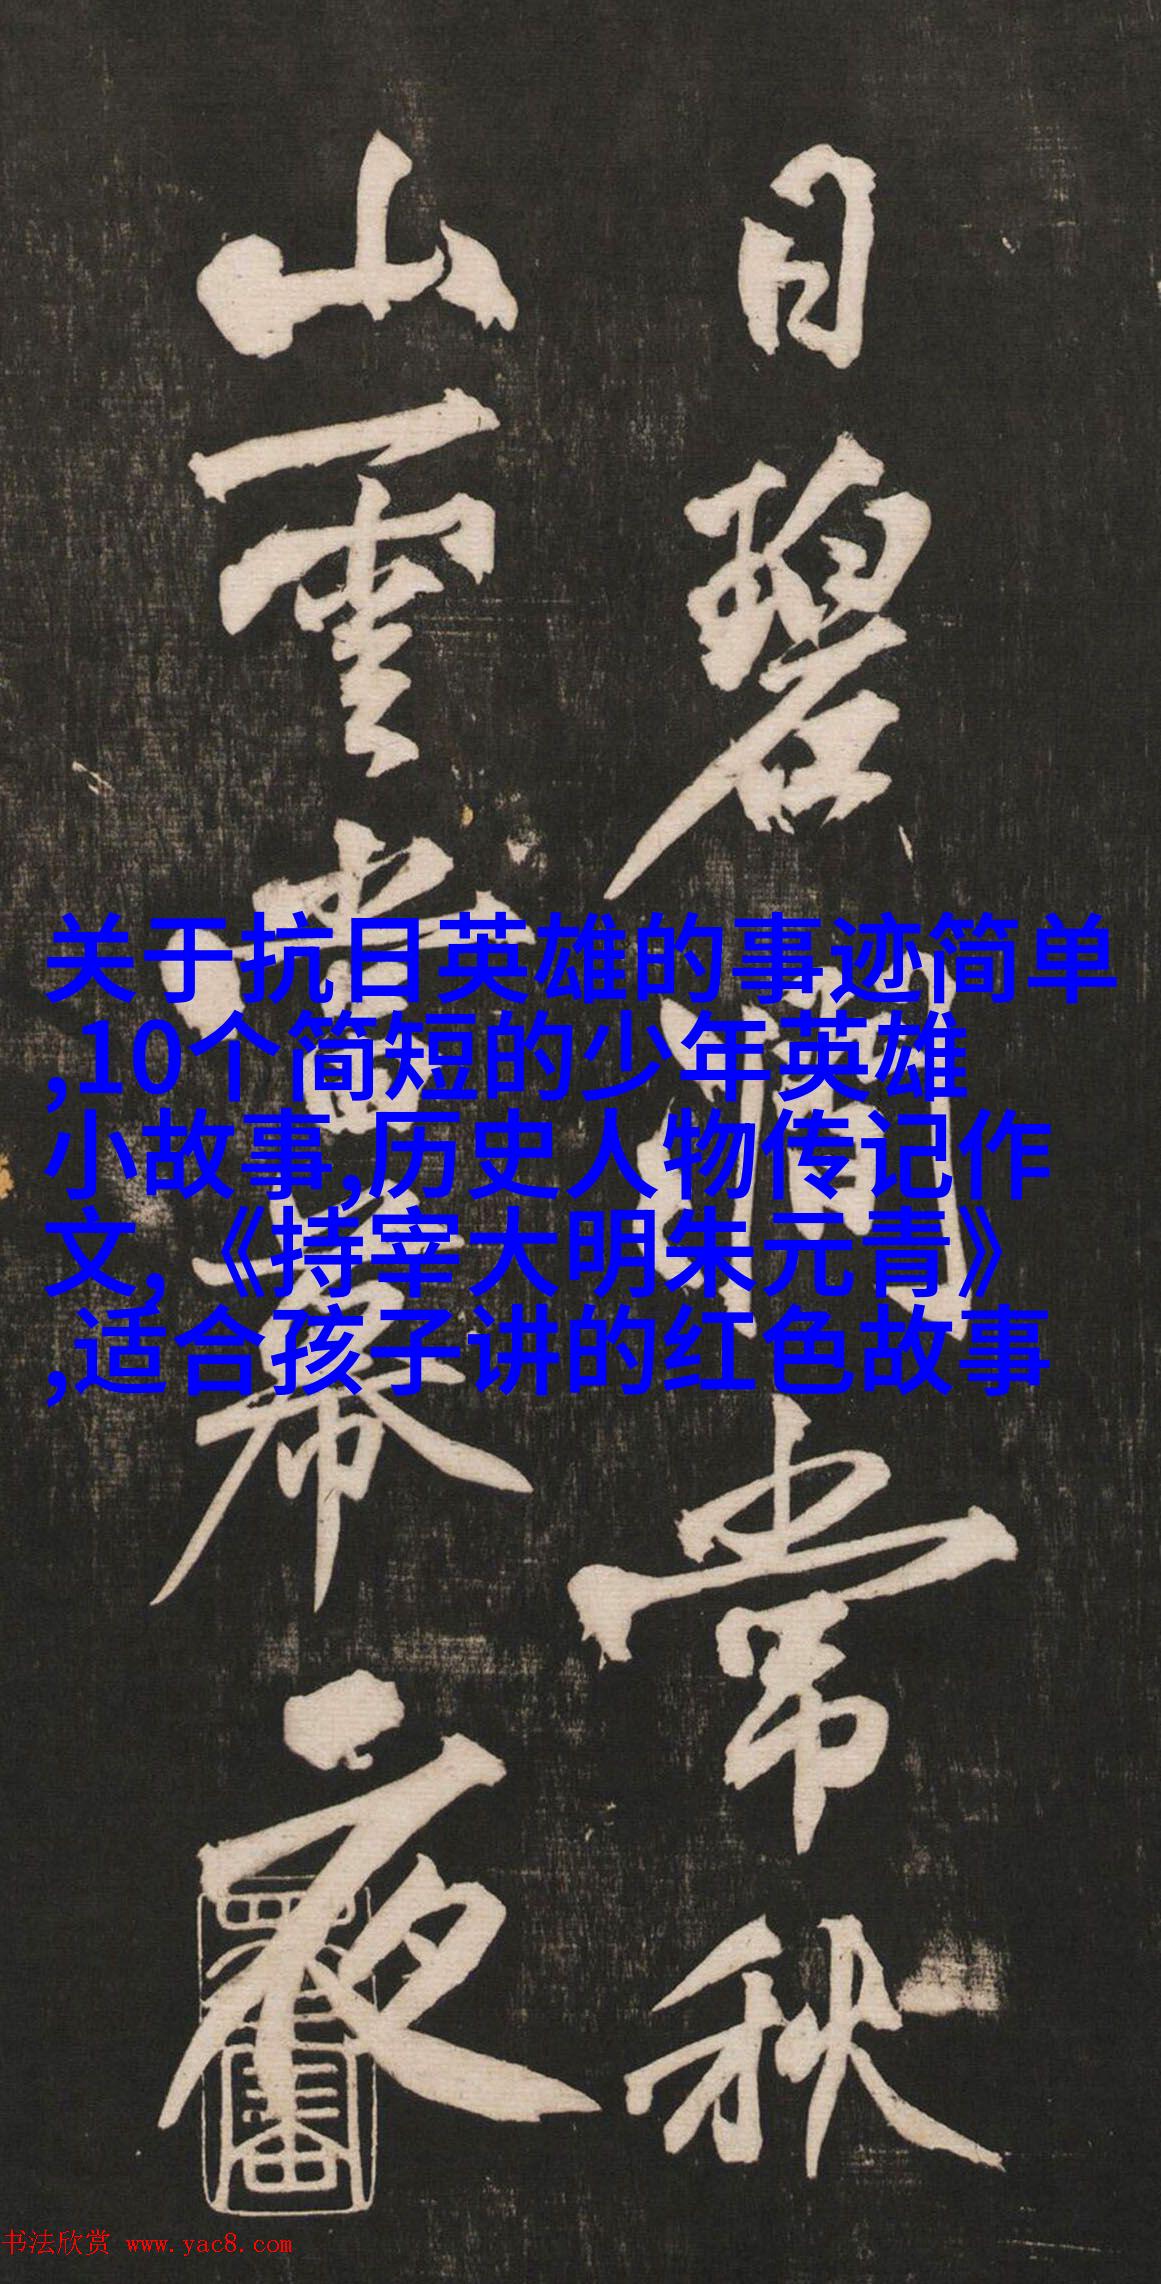 日碧澗常秋
山雲夜
关于抗日英雄的事迹简单
,10个简短的少年英雄
小故事,历史人物传记作
文,《持宰大明朱元青》
,适合孩子讲的红色故事
书法欣赏 www.yac8.com